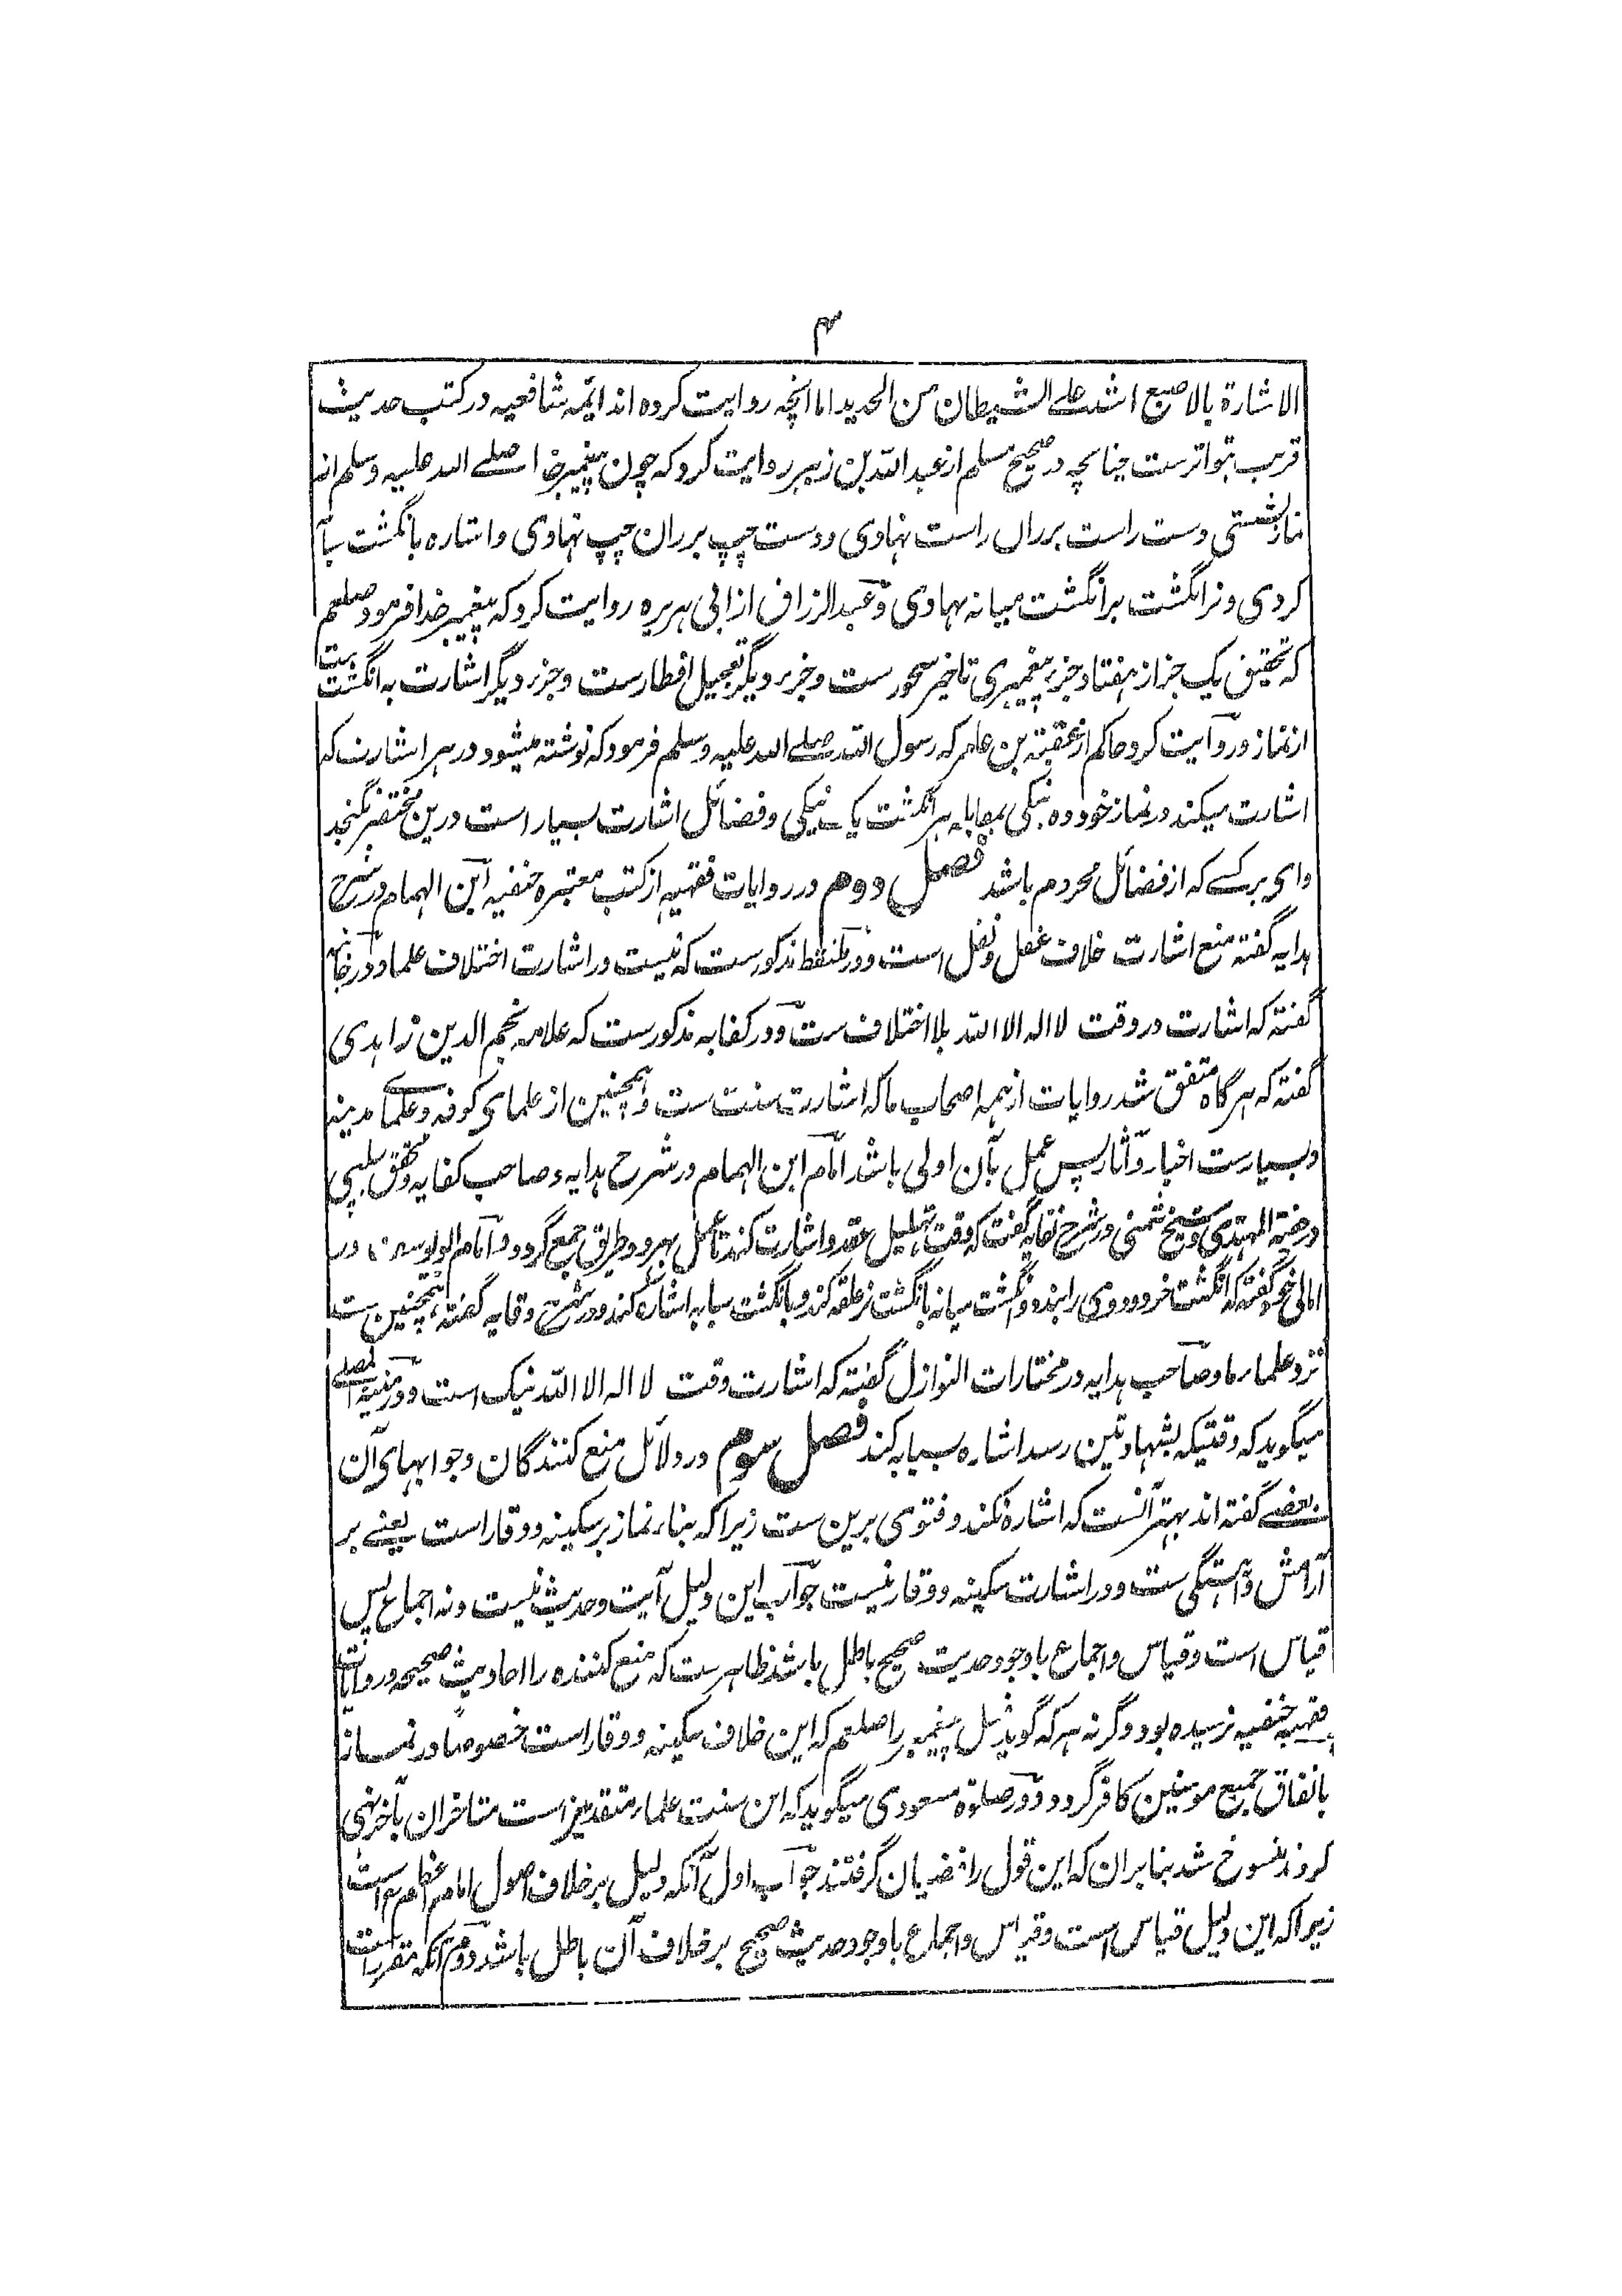 ۴
الاشارة بالاصبع اشد علے الشیطان من الحدید اما آنچه روایت کرده اند ائمه شافعیه در کتب حدیث
قریب بتواترست چنانچه در صحیح مسلم از عبد الله بن زبیر روایت کرد که چون پیغمبر خدا صلے الله علیه وسلم اندر
نماز نشستی دست راست بر ران راست نهادی و دست چپ بر ران چپ نهادی و اشاره بانگشت سبابه
کردی و نرانگشت بر انگشت میانه نهادی و عبد الرزاق از ابی هریره روایت کرد که پیغمبر خدا فرمود صلعم
که تحقیق یک جز از هفتاد جزء پیغمبری تاخیر سحورست و جزء دیگر تعجیل افطارست و جزء دیگر اشارت به انگشت ست
از نماز و روایت کرد حاکم از عقبة بن عامر که رسول الله صلے الله علیه وسلم فرمود که نوشته میشود در هر اشارت که
اشارت میکند در نماز خود ده نیکی بمقابله هر انگشت یک نیکی و فضائل اشارت بسیار است درین مختصر نگنجد
وای بر کسے که از فضائل محروم باشد فصل دوم در روایات فقهیه از کتب معتبره حنفیه ابن الهمام در شرح
هدایه گفته منع اشارت خلاف عقل و نقل است و در ملتقط مذکورست که نیست در اشارت اختلاف علما و در خانیه
گفته که اشارت در وقت لا اله الا الله بلا اختلاف ست و در کفایه مذکورست که علامه نجم الدین زاهدی
گفته که هرگاه متفق شد روایات از همه اصحاب ما که اشارت سنت ست و همچنین از علمای کوفه و علماے مدینه
و بسیارست اخبار و آثار پس عمل بآن اولی باشد امام ابن الهمام در شرح هدایه و صاحب کفایه و محقق چلپی
در غنیة المهتدی و شیخ شمنی در شرح نقایه گفت که وقت تهلیل عقد و اشارت کند تا عمل بهر دو طریق جمع گردد و امام ابو یوسف در
امالی خود گفته که انگشت خرد و دومی را بندد و انگشت میانه بانگشت نر حلقه کند و بانگشت سبابه اشاره کند و در شرح وقایه گفته همچنین ست
نزد علماء ما و صاحب هدایه در مختارات النوازل گفته که اشارت وقت لا اله الا الله نیک است و در منیة المصلے
میگوید که وقتیکه بشهادتین رسد اشاره بسبابه کند فصل سوم در دلائل منع کنندگان و جوابهای آن
بعضے گفته اند بهتر آنست که اشاره نکند و فتوی برین ست زیرا که بناء نماز بر سکینه و وقار است یعنے بر
آرامش و آهستگی ست و در اشارت سکینه و وقار نیست جواب این دلیل آیت و حدیث نیست و نه اجماع پس
قیاس است و قیاس و اجماع با وجود حدیث صحیح باطل باشد ظاهرست که منع کننده را احادیث صحیحه و روایات
فقهیه حنفیه نرسیده بود و گرنه هر که گوید فعل پیغمبر را صلعم که این خلاف سکینه و وقار است خصوصاً در نماز
باتفاق جمیع مومنین کافر گردد و در صلوٰة مسعودی میگوید که این سنت علماء متقدمین است متاخران بآخر نهی
کردند منسوخ شد بنا بران که این قول رافضیان گرفتند جواب اول آنکه دلیل بر خلاف اصول امام اعظم است
زیرا که این دلیل قیاس است و قیاس و اجماع با وجود حدیث صحیح بر خلاف آن باطل باشد دوم آنکه مقررست